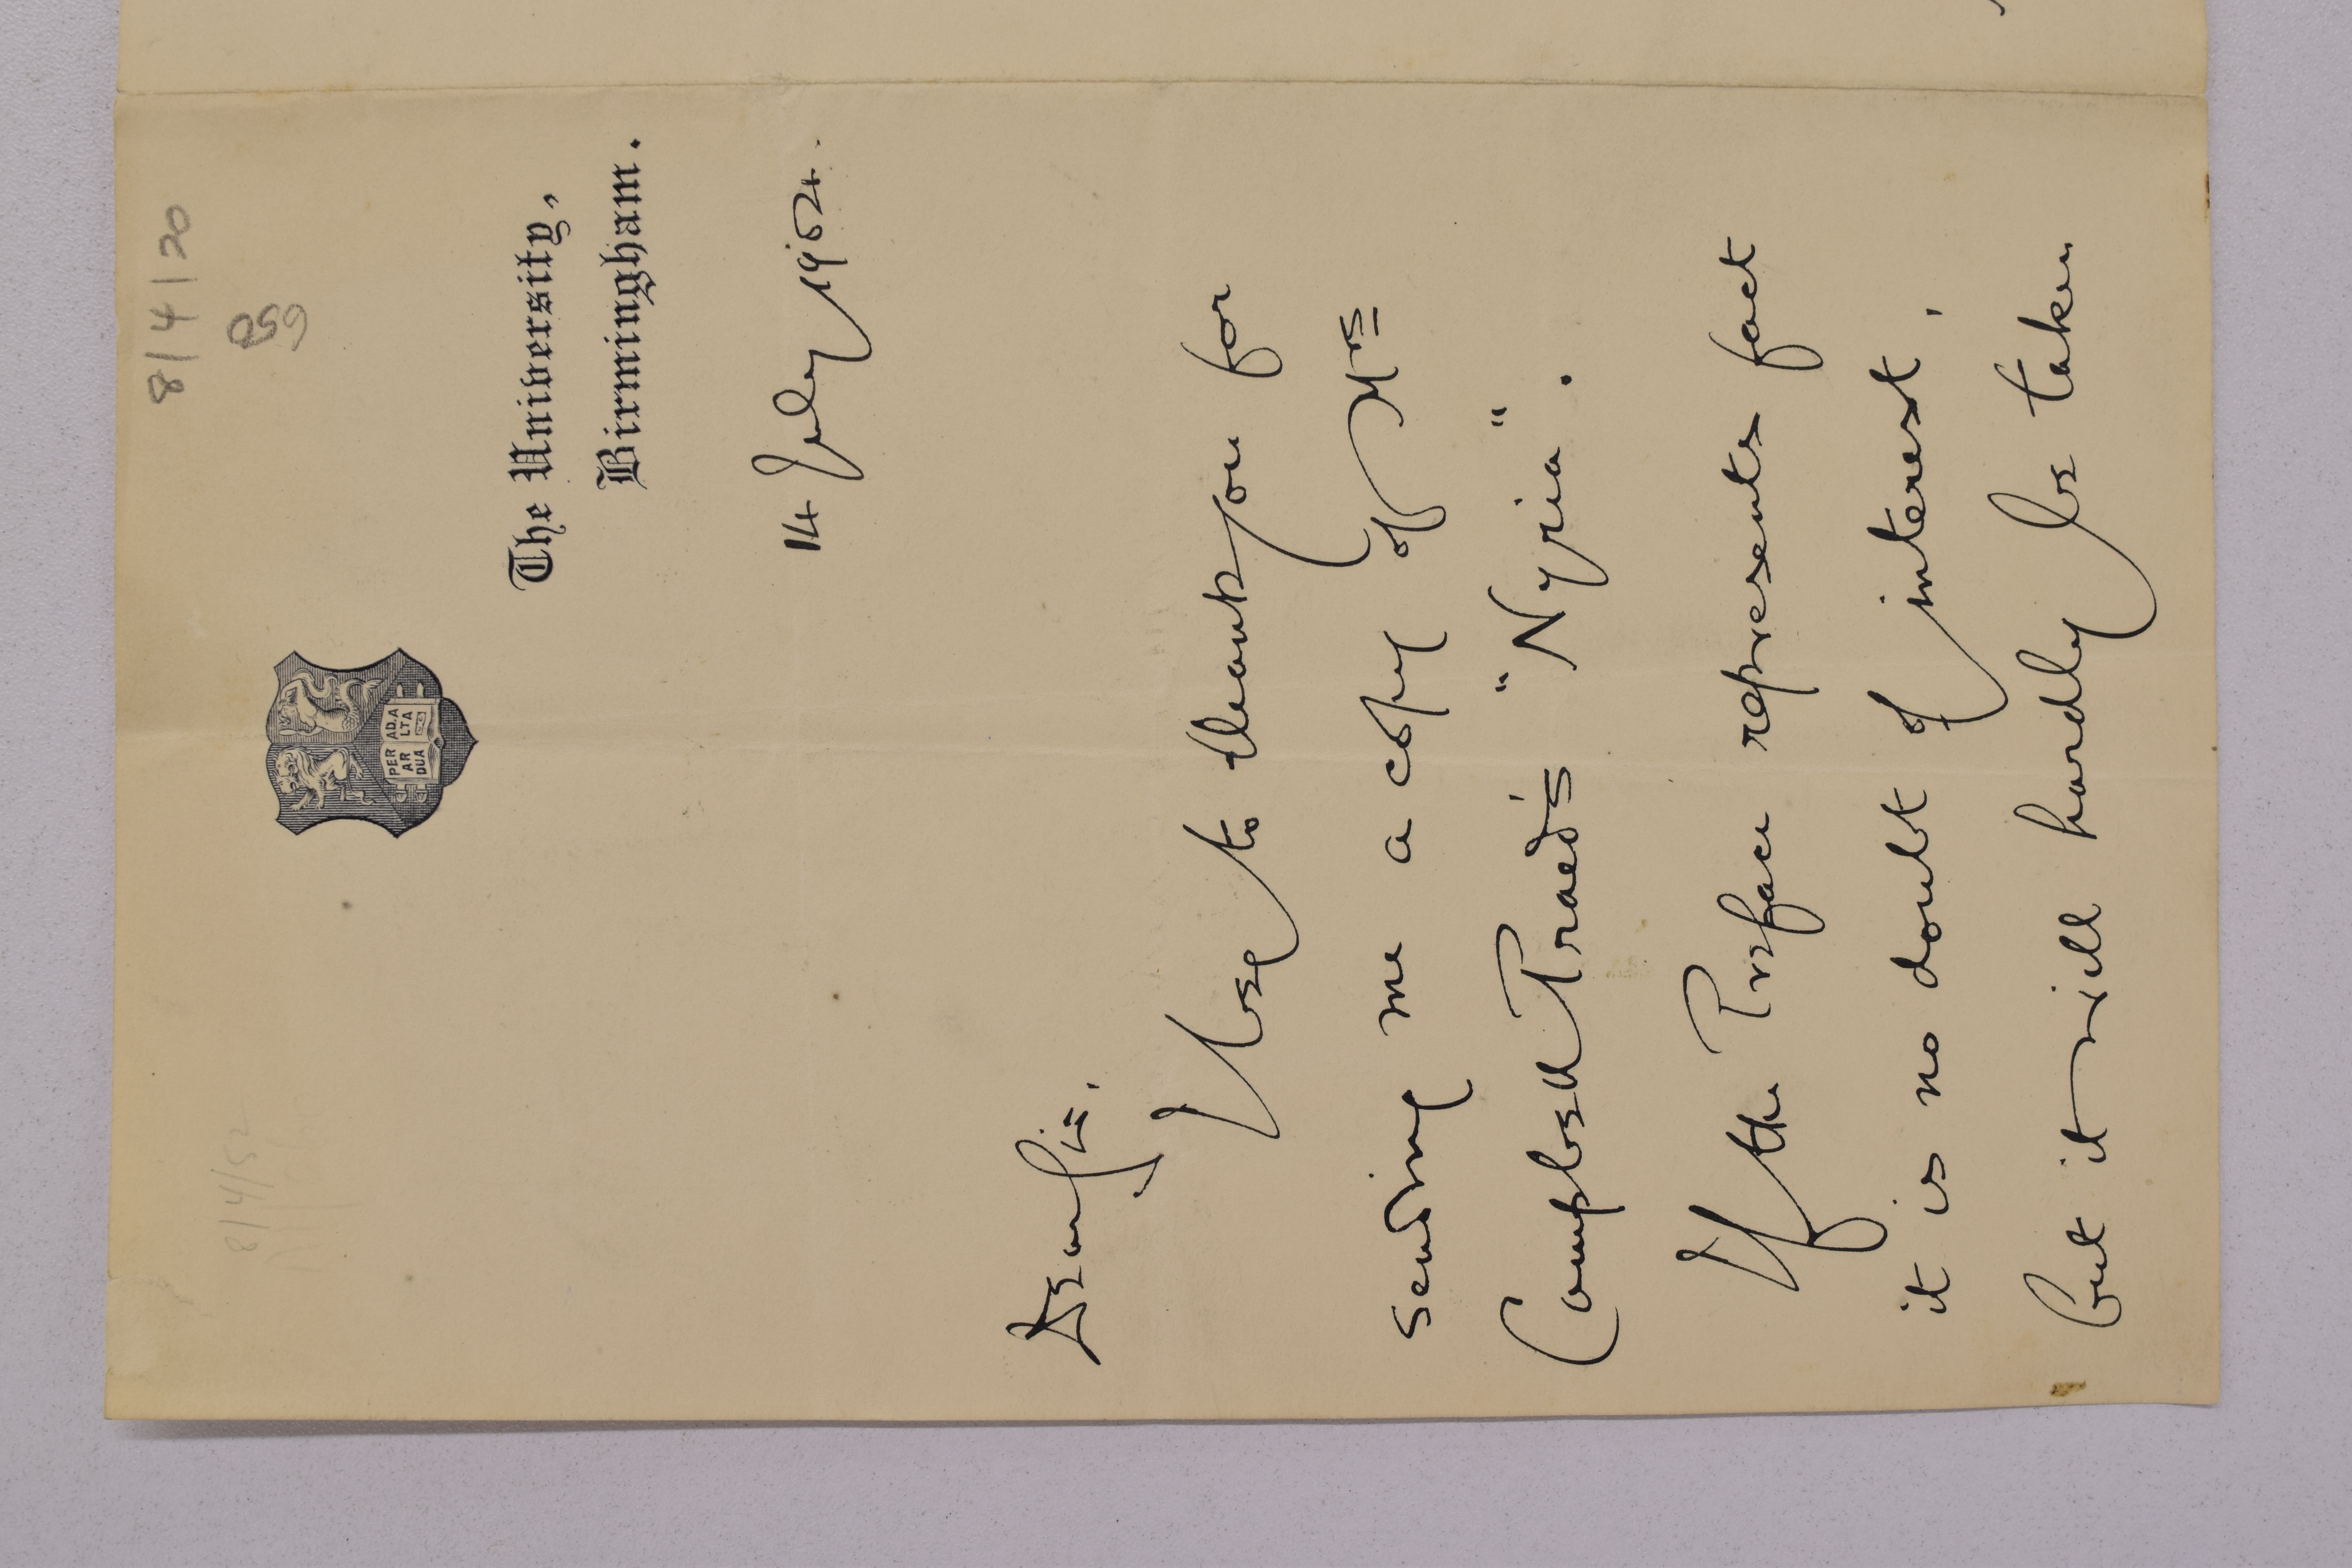 8/4/20
650
PER AD.A
AR LTA
DUA
The University,
Birmingham.
14 July 1904.
Dear Sir,
I beg to thank you for
sending me a copy of Mrs
Campbell Praed's "Nyria".
If the Preface represents fact
it is no doubt of interest,
but it will hardly be taken